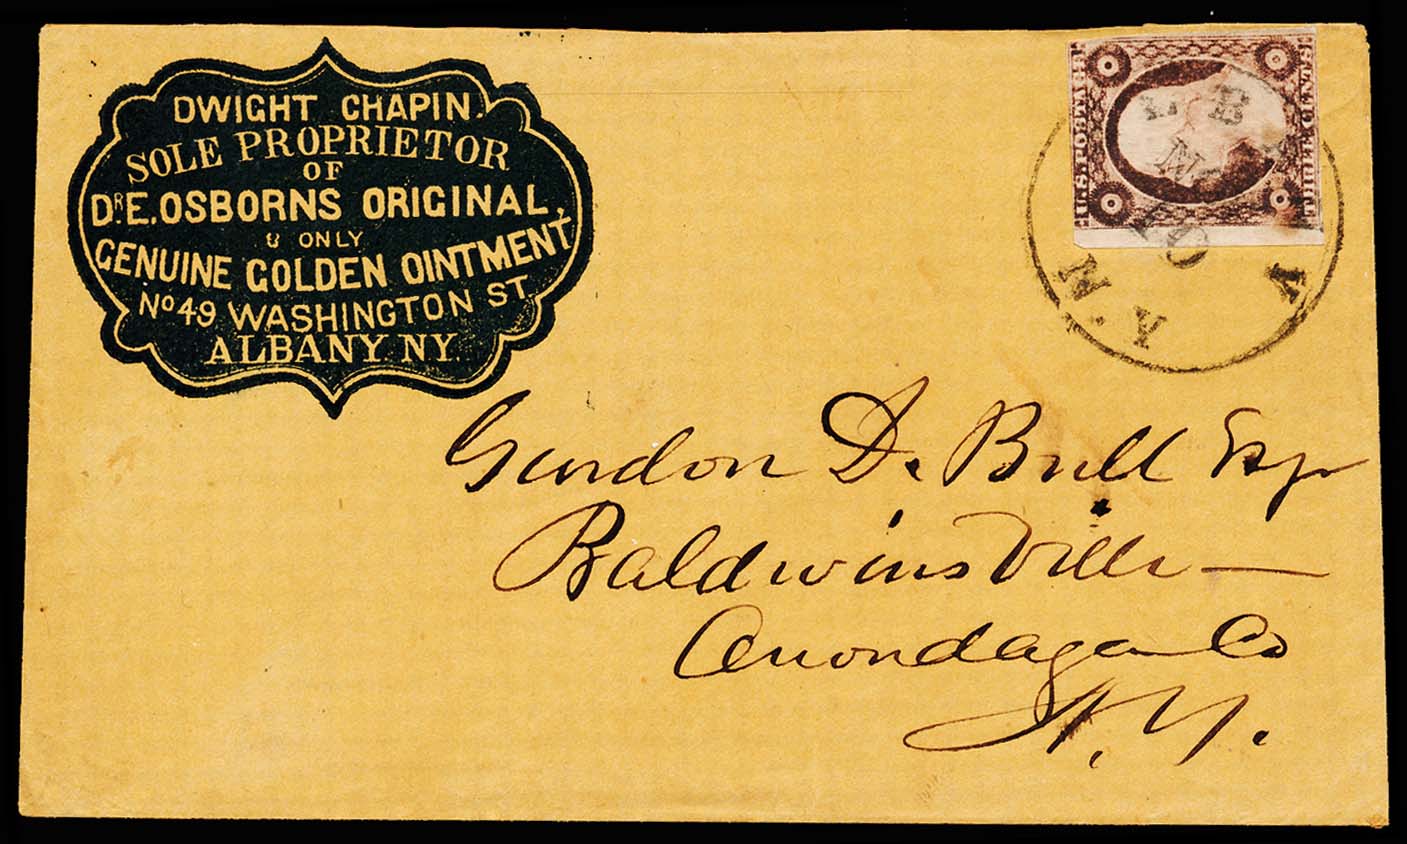 DWIGHT CHAPIN.
SOLE PROPRIETOR
OF
DR. E. OSBORNS ORIGINAL,
& ONLY
GENUINE GOLDEN OINTMENT
No 49 WASHINGTON ST.
ALBANY NY.
U.S. POSTAGE
THREE CENTS
10
N.Y.
Gurdon D. Bull Esqr
Baldwinsville —
Onondaga Co
N.Y.